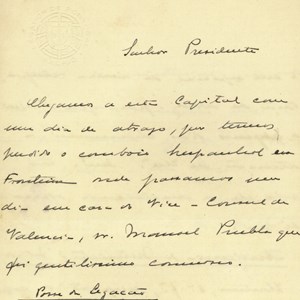 Senhor Presidente
Chegamos a esta Capital com
um dia de atrazo, por termos
perdido o comboio hespanhol em
Fronteira onde passamos um
dia em casa do Vice-Consul de
Valencia, sr. Manuel Puebla que
foi gentilissimo comnosco.
Posse da Legação